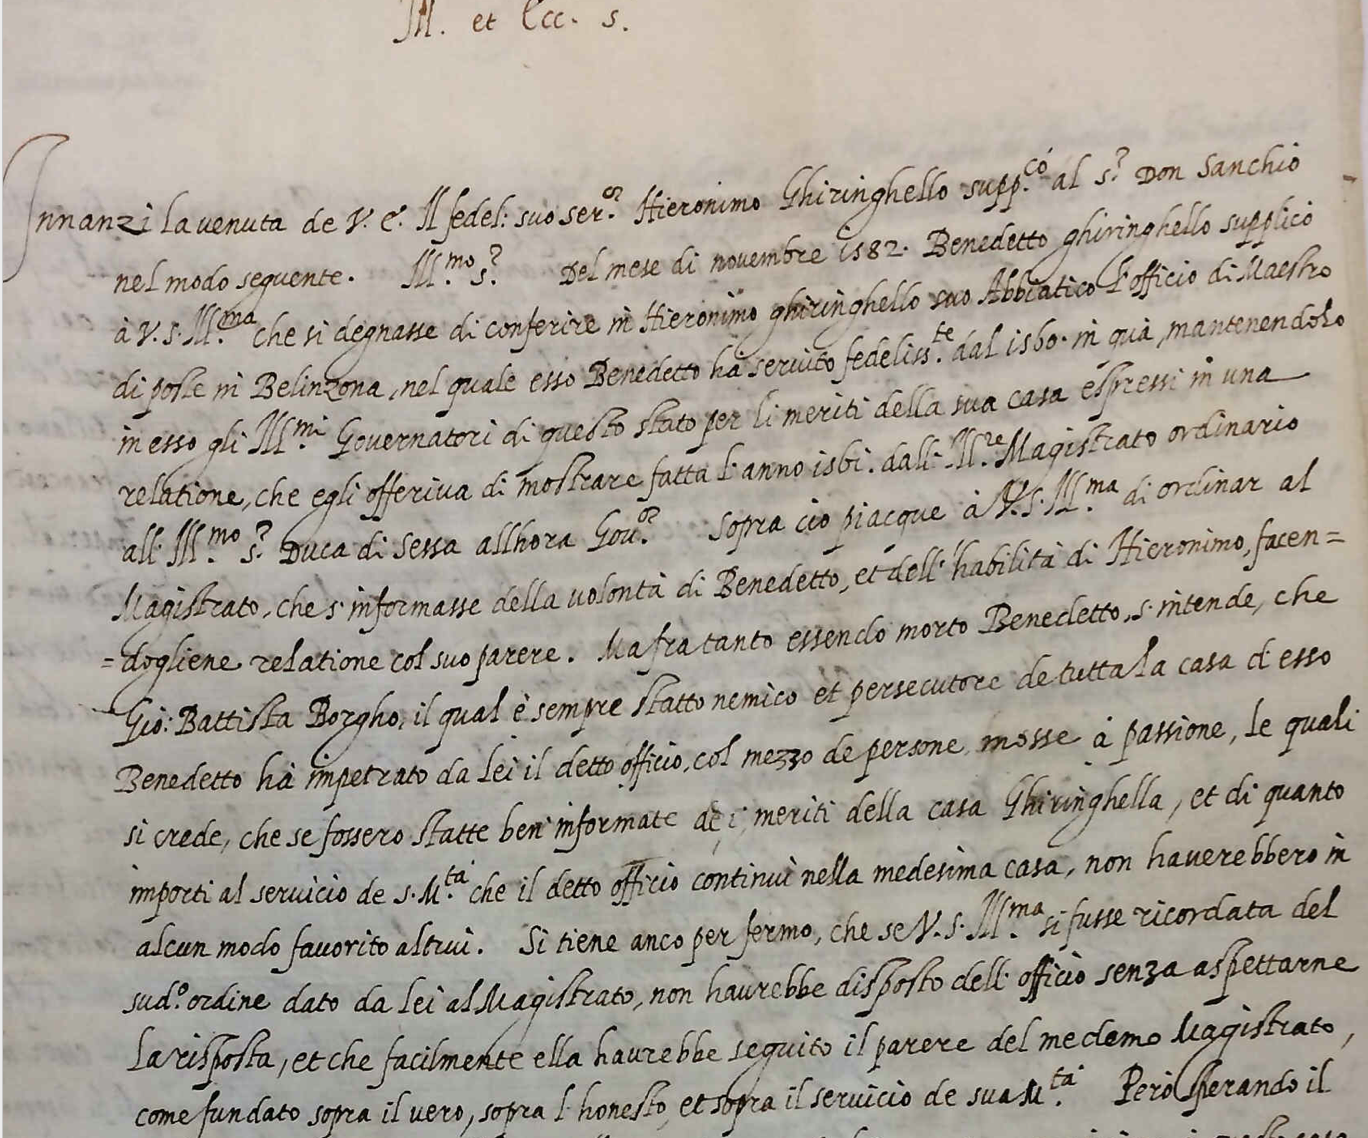 Ill. et Ecc. s.
Innanzi la venuta de V. E. Il fedel: suo ser.re Hieronimo Ghiringhello supp.có al s.r Don Sanchio
nel modo seguente. Ill.mo s.r Del mese di novembre 1582. Benedetto ghiringhello supplicò
à V. S. Ill.ma che si degnasse di conferire in Hieronimo ghiringhello suo Abbiatico l'officio di Maestro
di poste in Belinzona, nel quale esso Benedetto hà servito fedeliss.te dal 1560. in quà, mantenendolo
in esso gli Ill.mi Governatori di questo stato per li meriti della sua casa espressi in una
relatione, che egli offeriva di mostrare fatta l'anno 1561. dall' Ill.re Magistrato ordinario
all' Ill.mo s.r Duca di Sessa allhora Gov.re Sopra ciò piacque à V. S. Ill.ma di ordinar al
Magistrato, che s'informasse della volontà di Benedetto, et dell'habilità di Hieronimo, facen=
=dogliene relatione col suo parere. Ma fra tanto essendo morto Benedetto, s'intende, che
Giò: Battista Borgho, il qual è sempre statto nemico et persecutore de tutta la casa d'esso
Benedetto hà impetrato da lei il detto officio, col mezzo de persone mosse à passione, le quali
si crede, che se fossero statte ben informate de i meriti della casa Ghiringhella, et di quanto
importi al servicio de S. M.tà che il detto officio continui nella medesima casa, non haverebbero in
alcun modo favorito altrui. Si tiene anco per fermo, che se V. S. Ill.ma si fusse ricordata del
sud.o ordine dato da lei al Magistrato, non haurebbe disposto dell' officio senza aspettarne
la risposta, et che facilmente ella haurebbe seguito il parere del medemo Magistrato,
come fundato sopra il vero, sopra l'honesto, et sopra il servicio de sua M.tà Però sperando il